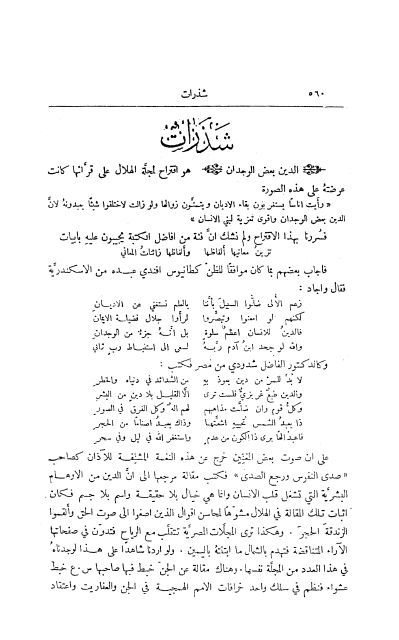 ٥٦٠ شذرات
شذرات
الدين بعض الوجدان هو اقتراح لمجلة الهلال على قرّائها كانت
عرضتهُ على هذه الصورة
« رأيت اناسًا يستنفرون بقاء الاديان ويتمنّون زوالها ولو زالت لاختلقوا شيئًا يعبدونهُ لانَّ
الدين بعض الوجدان واقوى تعزية لبني الانسان »
فسُررنا بهذا الاقتراح ولم نشك انَّ فئة من افاضل الكتبة يجيبون عليهِ بابيات
تزينُ معانيها ألفاظها وألفاظها زائنات المعاني
فاجاب بعضهم بما كان موافقًا للظنّ كطانيوس افندي عبده من الاسكندرية
فقال واجاد :
زعم الأُلى ضلّوا السبيلَ بأنَّنا بالعلم نستغني عن الاديانِ
لكنَّهم لو امعنوا وتبصَّروا لرأَوا جلال فضيلة الايمانِ
فالدينُ للانسان اعظمُ سلوةٍ بل انَّهُ جزءٌ من الوجدانِ
والله لو جحد ابنُ آدم ربَّهُ لسعى الى استنباط ربٍ ثاني
وكالدكتور الفاضل شدودي من مصر فكتب :
لا بدَّ للمرءِ من دينٍ يعوذ بهِ من الشدائد في دنياه والخطرِ
والدين طبعٌ غريزيٌّ فلست ترى الَّا القليل بلا دينٍ من البشرِ
وكلُّ قومٍ وان ضلَّت مذاهبهم لهم الهٌ وكل الفرق في الصورِ
ذا يعبدُ الشمس تحييهِ اشعَّتها وذاك يعبدُ اصنامًا من الحجرِ
فاعبد الهًا برى ذا الكون من عدمٍ واستغفر الله في ليل وفي سحرِ
على ان صوت بعض المغنّين خرج عن هذه النغمة المشنِّفة للآذان كصاحب
« صدى النفوس ورجع الصدى » فكتب مقالة مرجعها الى انَّ الدين من الاوهام
البشريَّة التي تشغل قلب الانسان وانما هي خيال بلا حقيقة واسم بلا جسم فكان
اثبات تلك المقالة في الهلال مشوّهًا لمحاسن اقوال الذين اصغوا الى صوت الحق وألقموا
الزندقة الحجرَ . وهكذا ترى المجلّات المصريَّة تتقلّب مع الرياح فتدوّن في صفحاتها
الآراء المتناقضة فتهدم بالشمال ما ابتنتهُ باليمين . ولو اردنا شاهدًا على هذا لوجدناهُ
في هذا العدد من المجلّة نفسها . وهناك مقالة عن الجنّ خبط فيها صاحبها س . ع خبط
عشواء فنظم في سلك واحد خرافات الامم الهمجية في الجن والعفاريت واعتقاد